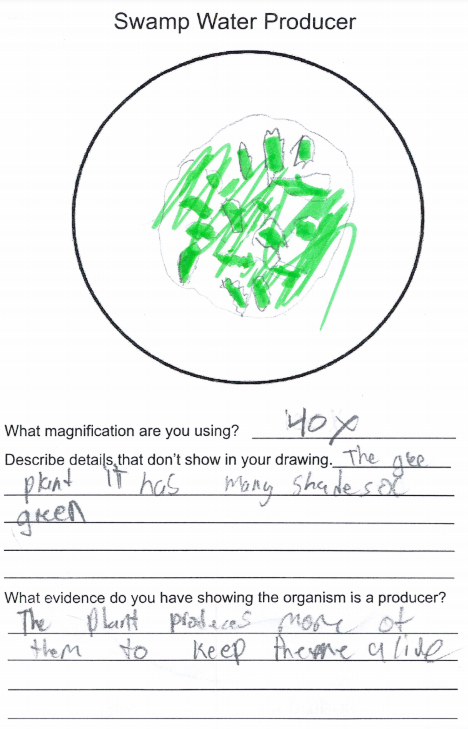 Swamp Water Producer
What magnification are you using? 40x
Describe details that don't show in your drawing. The gree
plant it has many shades of
green
What evidence do you have showing the organism is a producer?
The plant produces more of
them to keep theme alive